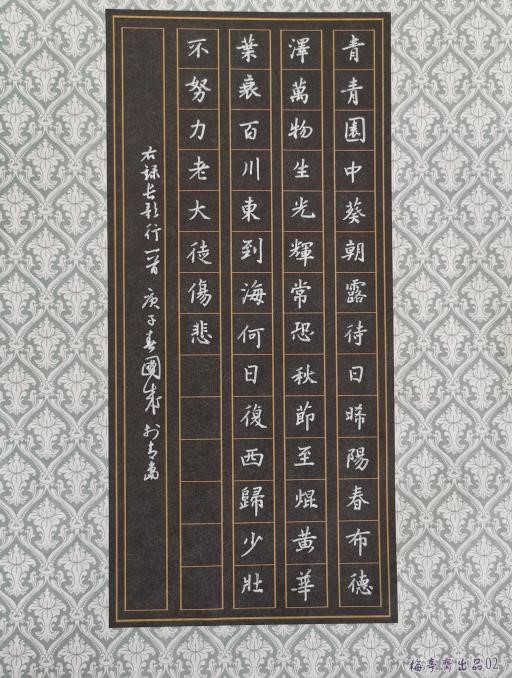 青青園中葵朝露待日晞陽春布德
澤萬物生光輝常恐秋節至焜黃華
葉衰百川東到海何日復西歸少壯
不努力老大徒傷悲
右録長歌行一首 庚子春國成於青島
梅亭齊出品02